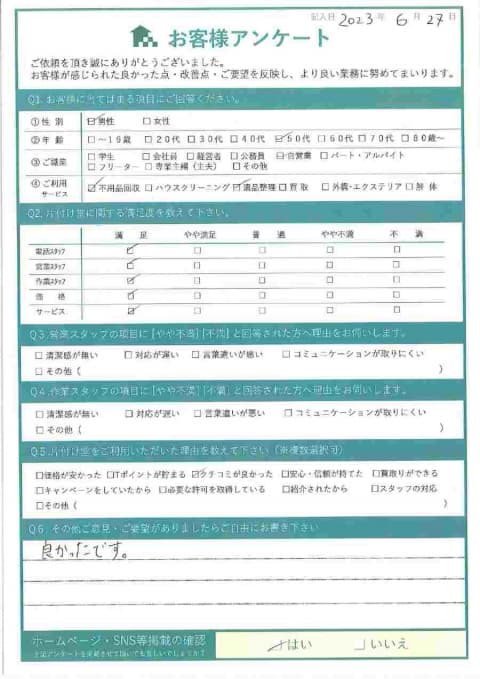 記入日 2023年 6月 27日
お客様アンケート
ご依頼を頂き誠にありがとうございました。
お客様が感じられた良かった点・改善点・ご要望を反映し、より良い業務に努めてまいります。
Q1. お客様に当てはまる項目にご回答ください。
①性 別 ☑男性 □女性
②年 齢 □~19歳 □20代 □30代 □40代 ☑50代 □60代 □70代 □80歳~
③ご職業 □学生 □会社員 □経営者 □公務員 ☑自営業 □パート・アルバイト
□フリーター □専業主婦(主夫) □その他
④ご利用サービス ☑不用品回収 □ハウスクリーニング ☑遺品整理 □買取 □外構・エクステリア □解体
Q2. 片付け堂に関する満足度を教えて下さい。
満 足 やや満足 普 通 やや不満 不 満
電話スタッフ ☑ □ □ □ □
営業スタッフ ☑ □ □ □ □
作業スタッフ ☑ □ □ □ □
価 格 ☑ □ □ □ □
サービス ☑ □ □ □ □
Q3. 営業スタッフの項目に[やや不満][不満]と回答された方へ理由をお伺いします。
□清潔感が無い □対応が遅い □言葉遣いが悪い □コミュニケーションが取りにくい
□その他( )
Q4. 作業スタッフの項目に[やや不満][不満]と回答された方へ理由をお伺いします。
□清潔感が無い □対応が遅い □言葉遣いが悪い □コミュニケーションが取りにくい
□その他( )
Q5. 片付け堂をご利用いただいた理由を教えて下さい(※複数選択可)
□価格が安かった □Tポイントが貯まる ☑クチコミが良かった □安心・信頼が持てた □買取りができる
□キャンペーンをしていたから □必要な許可を取得している □紹介されたから □スタッフの対応
□その他( )
Q6. その他ご意見・ご要望がありましたらご自由にお書き下さい
良かったです。
ホームページ・SNS等掲載の確認 ☑はい □いいえ
上記アンケートを掲載させて頂いても宜しいでしょうか?